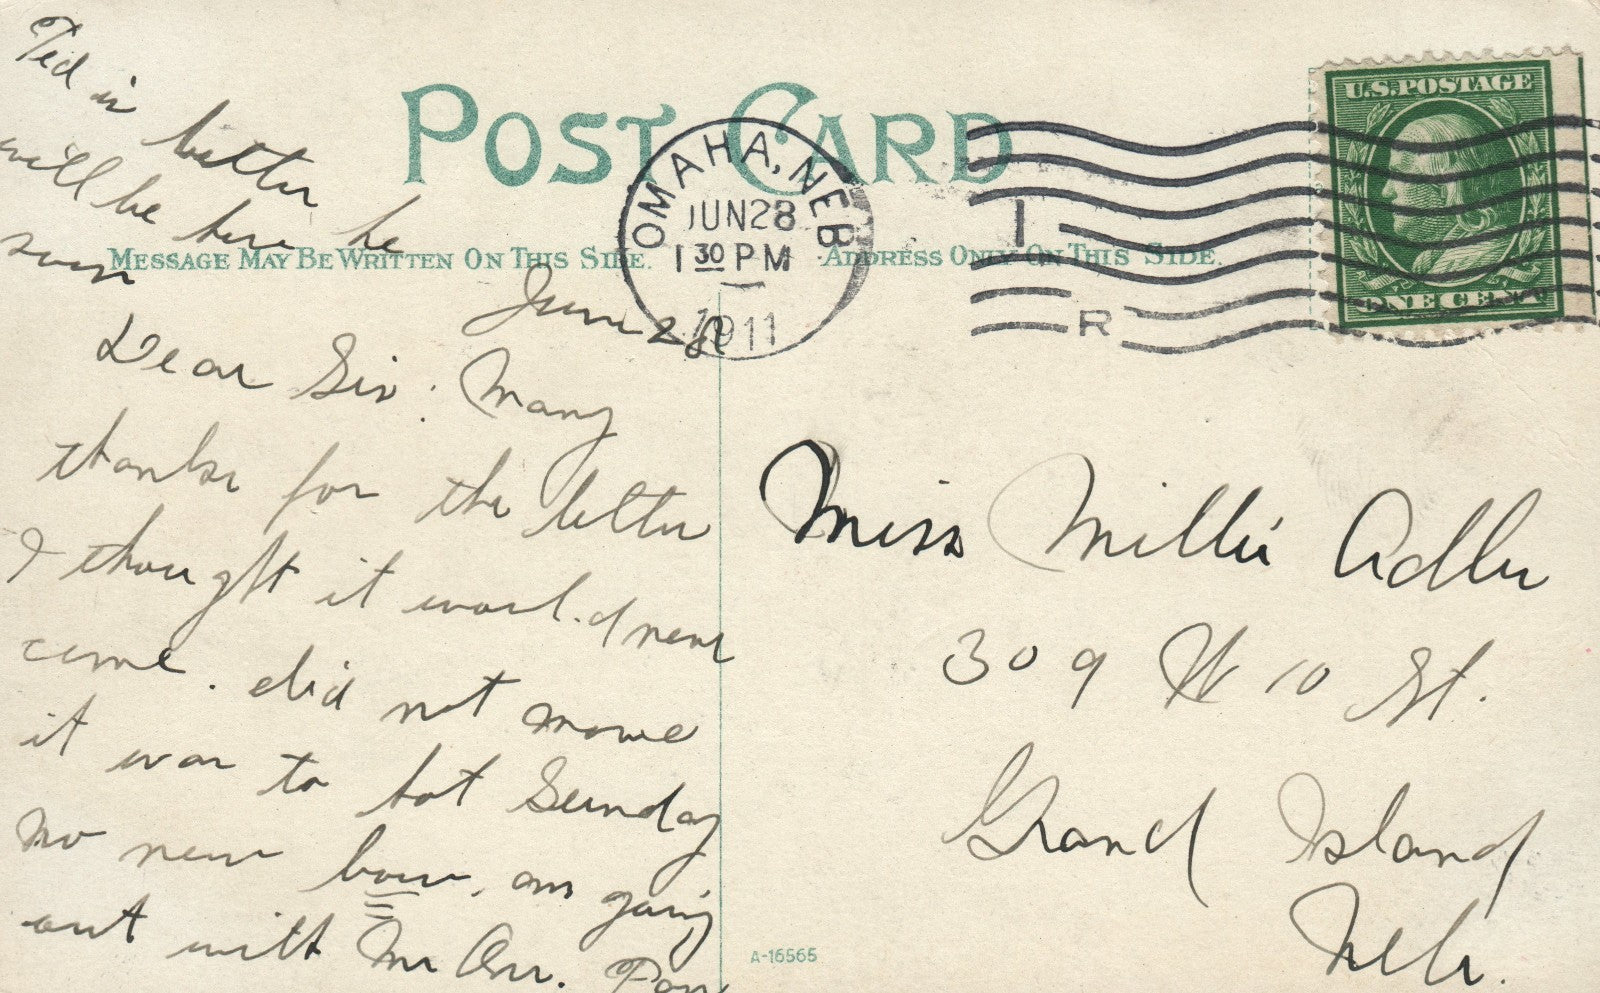 Ted is better
will be here he
soon
POST CARD
MESSAGE MAY BE WRITTEN ON THIS SIDE.
ADDRESS ONLY ON THIS SIDE.
OMAHA, NEB
JUN 28
1 30 PM
1911
1
R
U.S. POSTAGE
ONE CENT
June 28
Dear Sir: Many
thanks for the letter
I thought it would never
come. did not move
it was to hot Sunday
no new beau, am going
out with Mr Orr.
Miss Millie Adler
309 W 10 St.
Grand Island
Neb.
A-16565